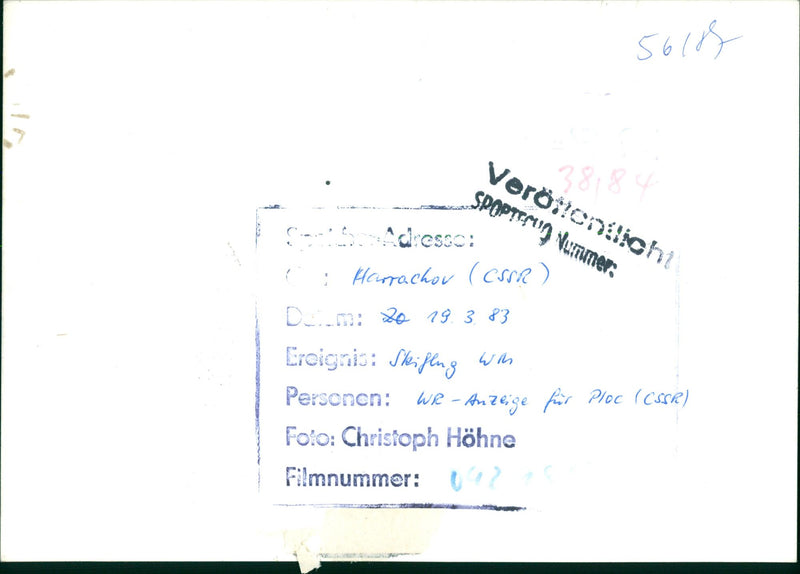 56/87
38/84
Veröffentlicht
SPORTFLUG Nummer:
Speicher-Adresse:
Ort: Harrachov (CSSR)
Datum: 19. 3. 83
Ereignis: Skiflug WM
Personen: WR-Anzeige für Ploc (CSSR)
Foto: Christoph Höhne
Filmnummer: 042